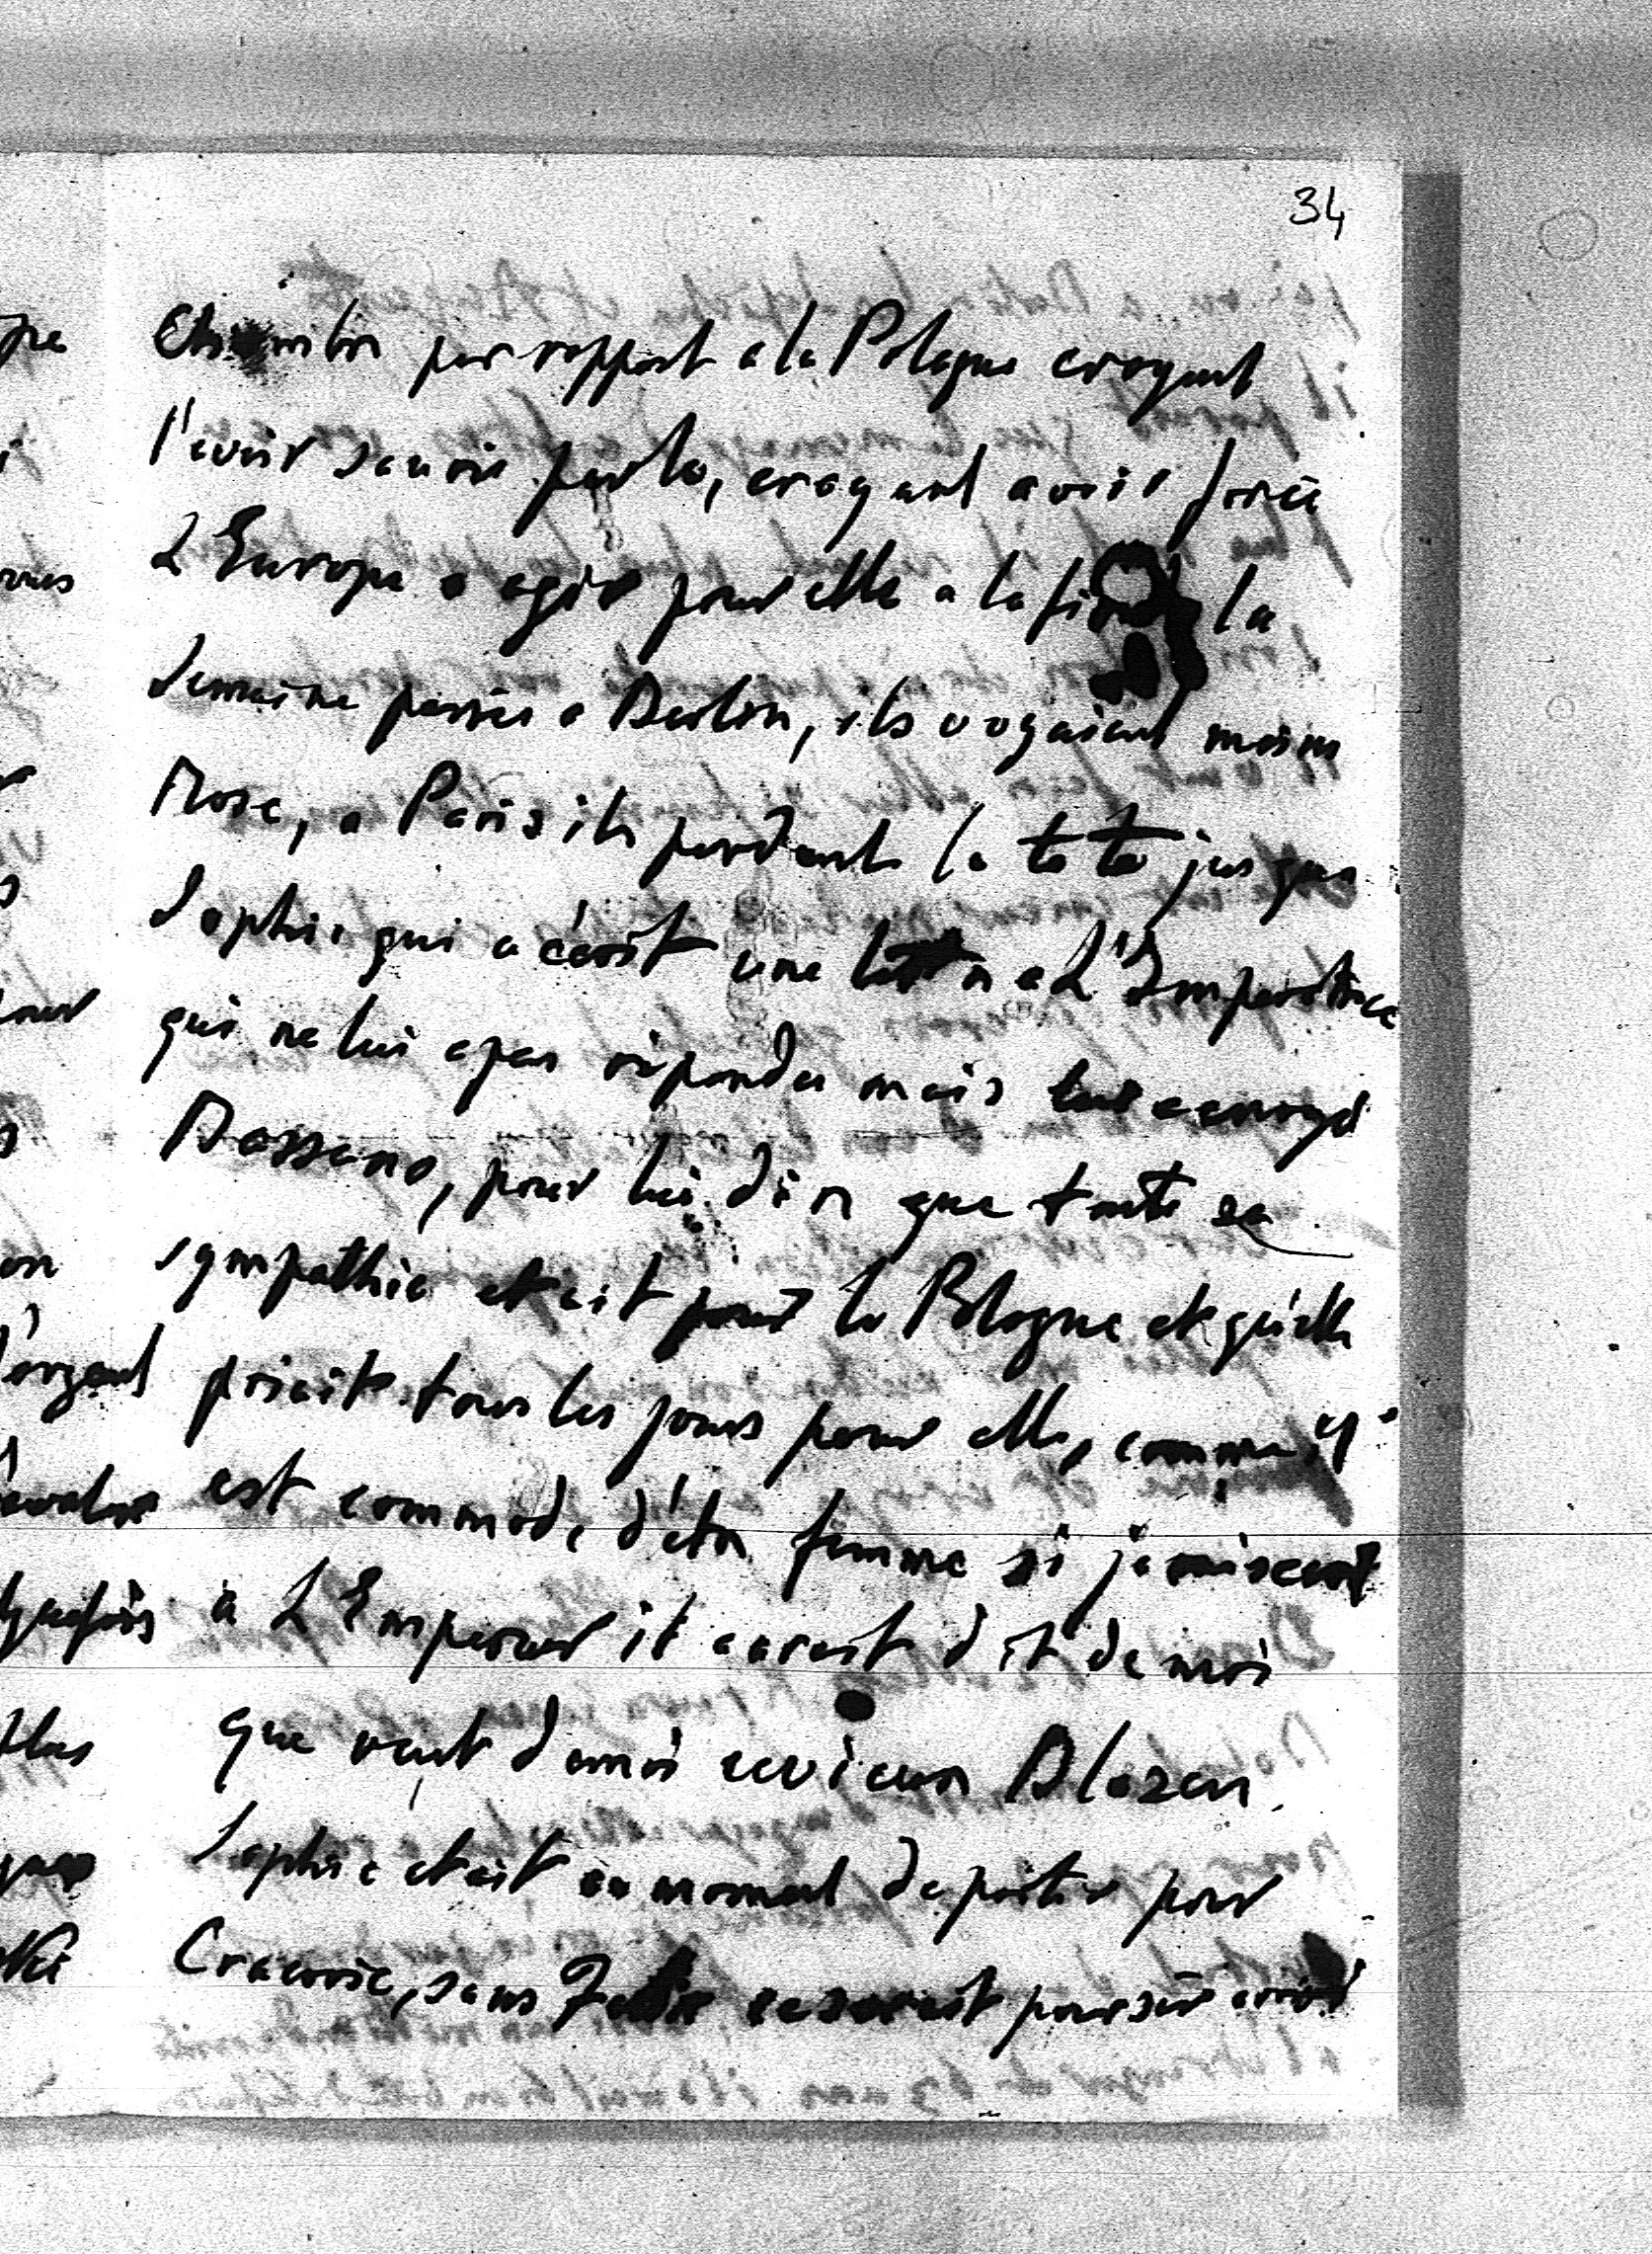 34
par rapport a la Pologne croyant
l'avoir sauvé par la, croyant avoir forcé
L'Europe a agir pour elle a la fin la
semaine passée a Berlin, ils voyaient moins
Rose, a Paris ils perdent la tete jusque
Sophie qui a écrit une lettre a L'Imperatrice
qui ne lui a pas répondu mais lui a envoyé
Bassano, pour lui dire que toute sa
sympathie etait pour la Pologne et qu'elle
priait tous les jours pour elle, comme il
est commode d'etre femme si j'
a L'Empereur il aurait dit de moi
que veut d Blazen
Sophie etait au moment de partir pour
Cracovie, sans pour sur